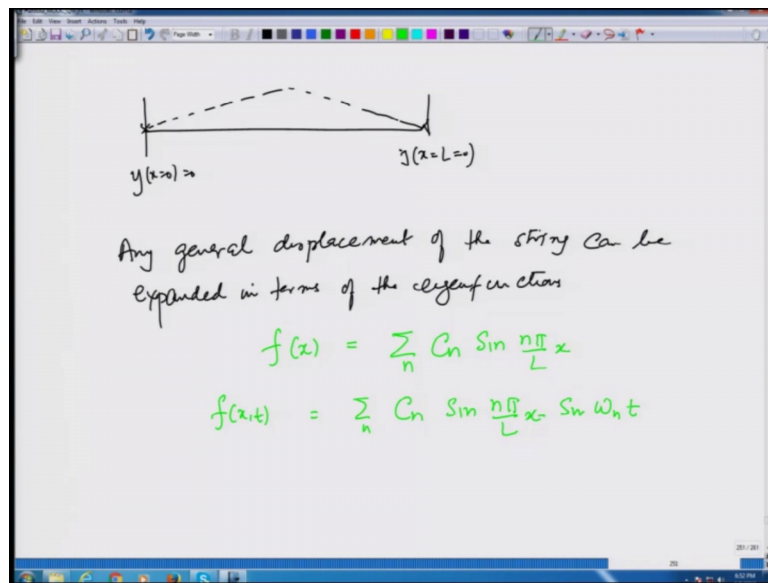 File Edit View Insert Actions Tools Help
Page Width
y(x=0)=0
y(x=L=0)
Any general displacement of the string can be
expanded in terms of the eigenfunctions
f(x) = Σ_n Cn Sin nπ/L x
f(x,t) = Σ_n Cn Sin nπ/L x Sin ωn t
251 / 261
250
8:52 PM